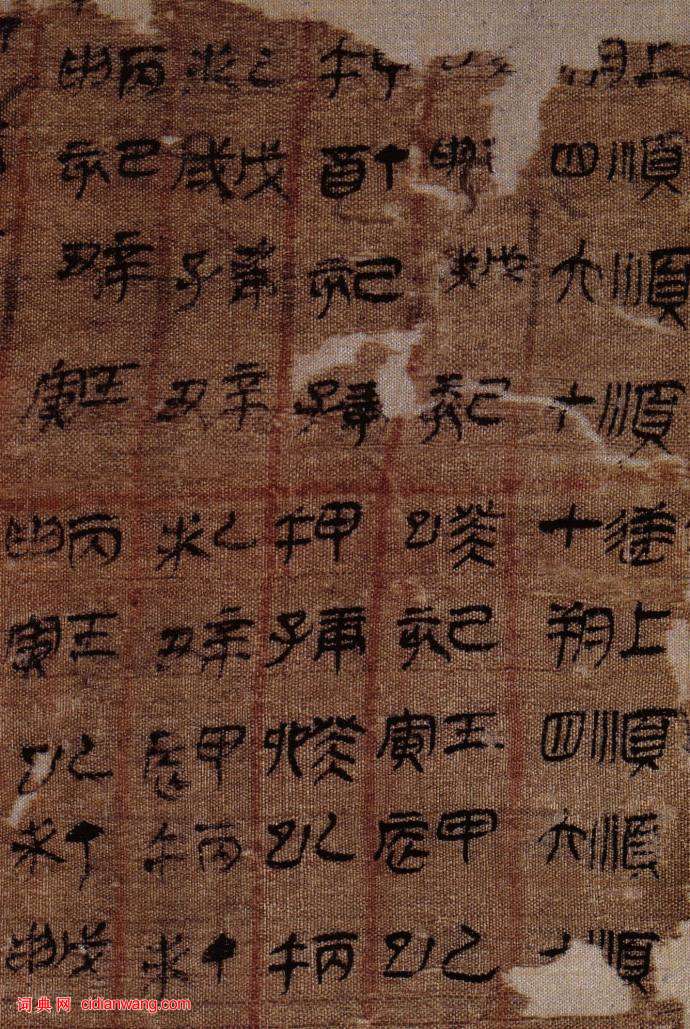 上朔 順四 順六 順十 逆十 上朔 順四 順六 順
申 戊戌 己亥 癸巳 己亥 壬寅 甲辰 乙巳
午 丁酉 己亥 庚子 甲午 庚子 癸卯 乙巳 丙午
乙未 戊戌 庚子 辛丑 乙未 辛丑 甲辰 丙午 丁未
丙申 己亥 辛丑 壬寅 丙申 壬寅 乙巳 丁未 戊申
词典网 cidianwang.com